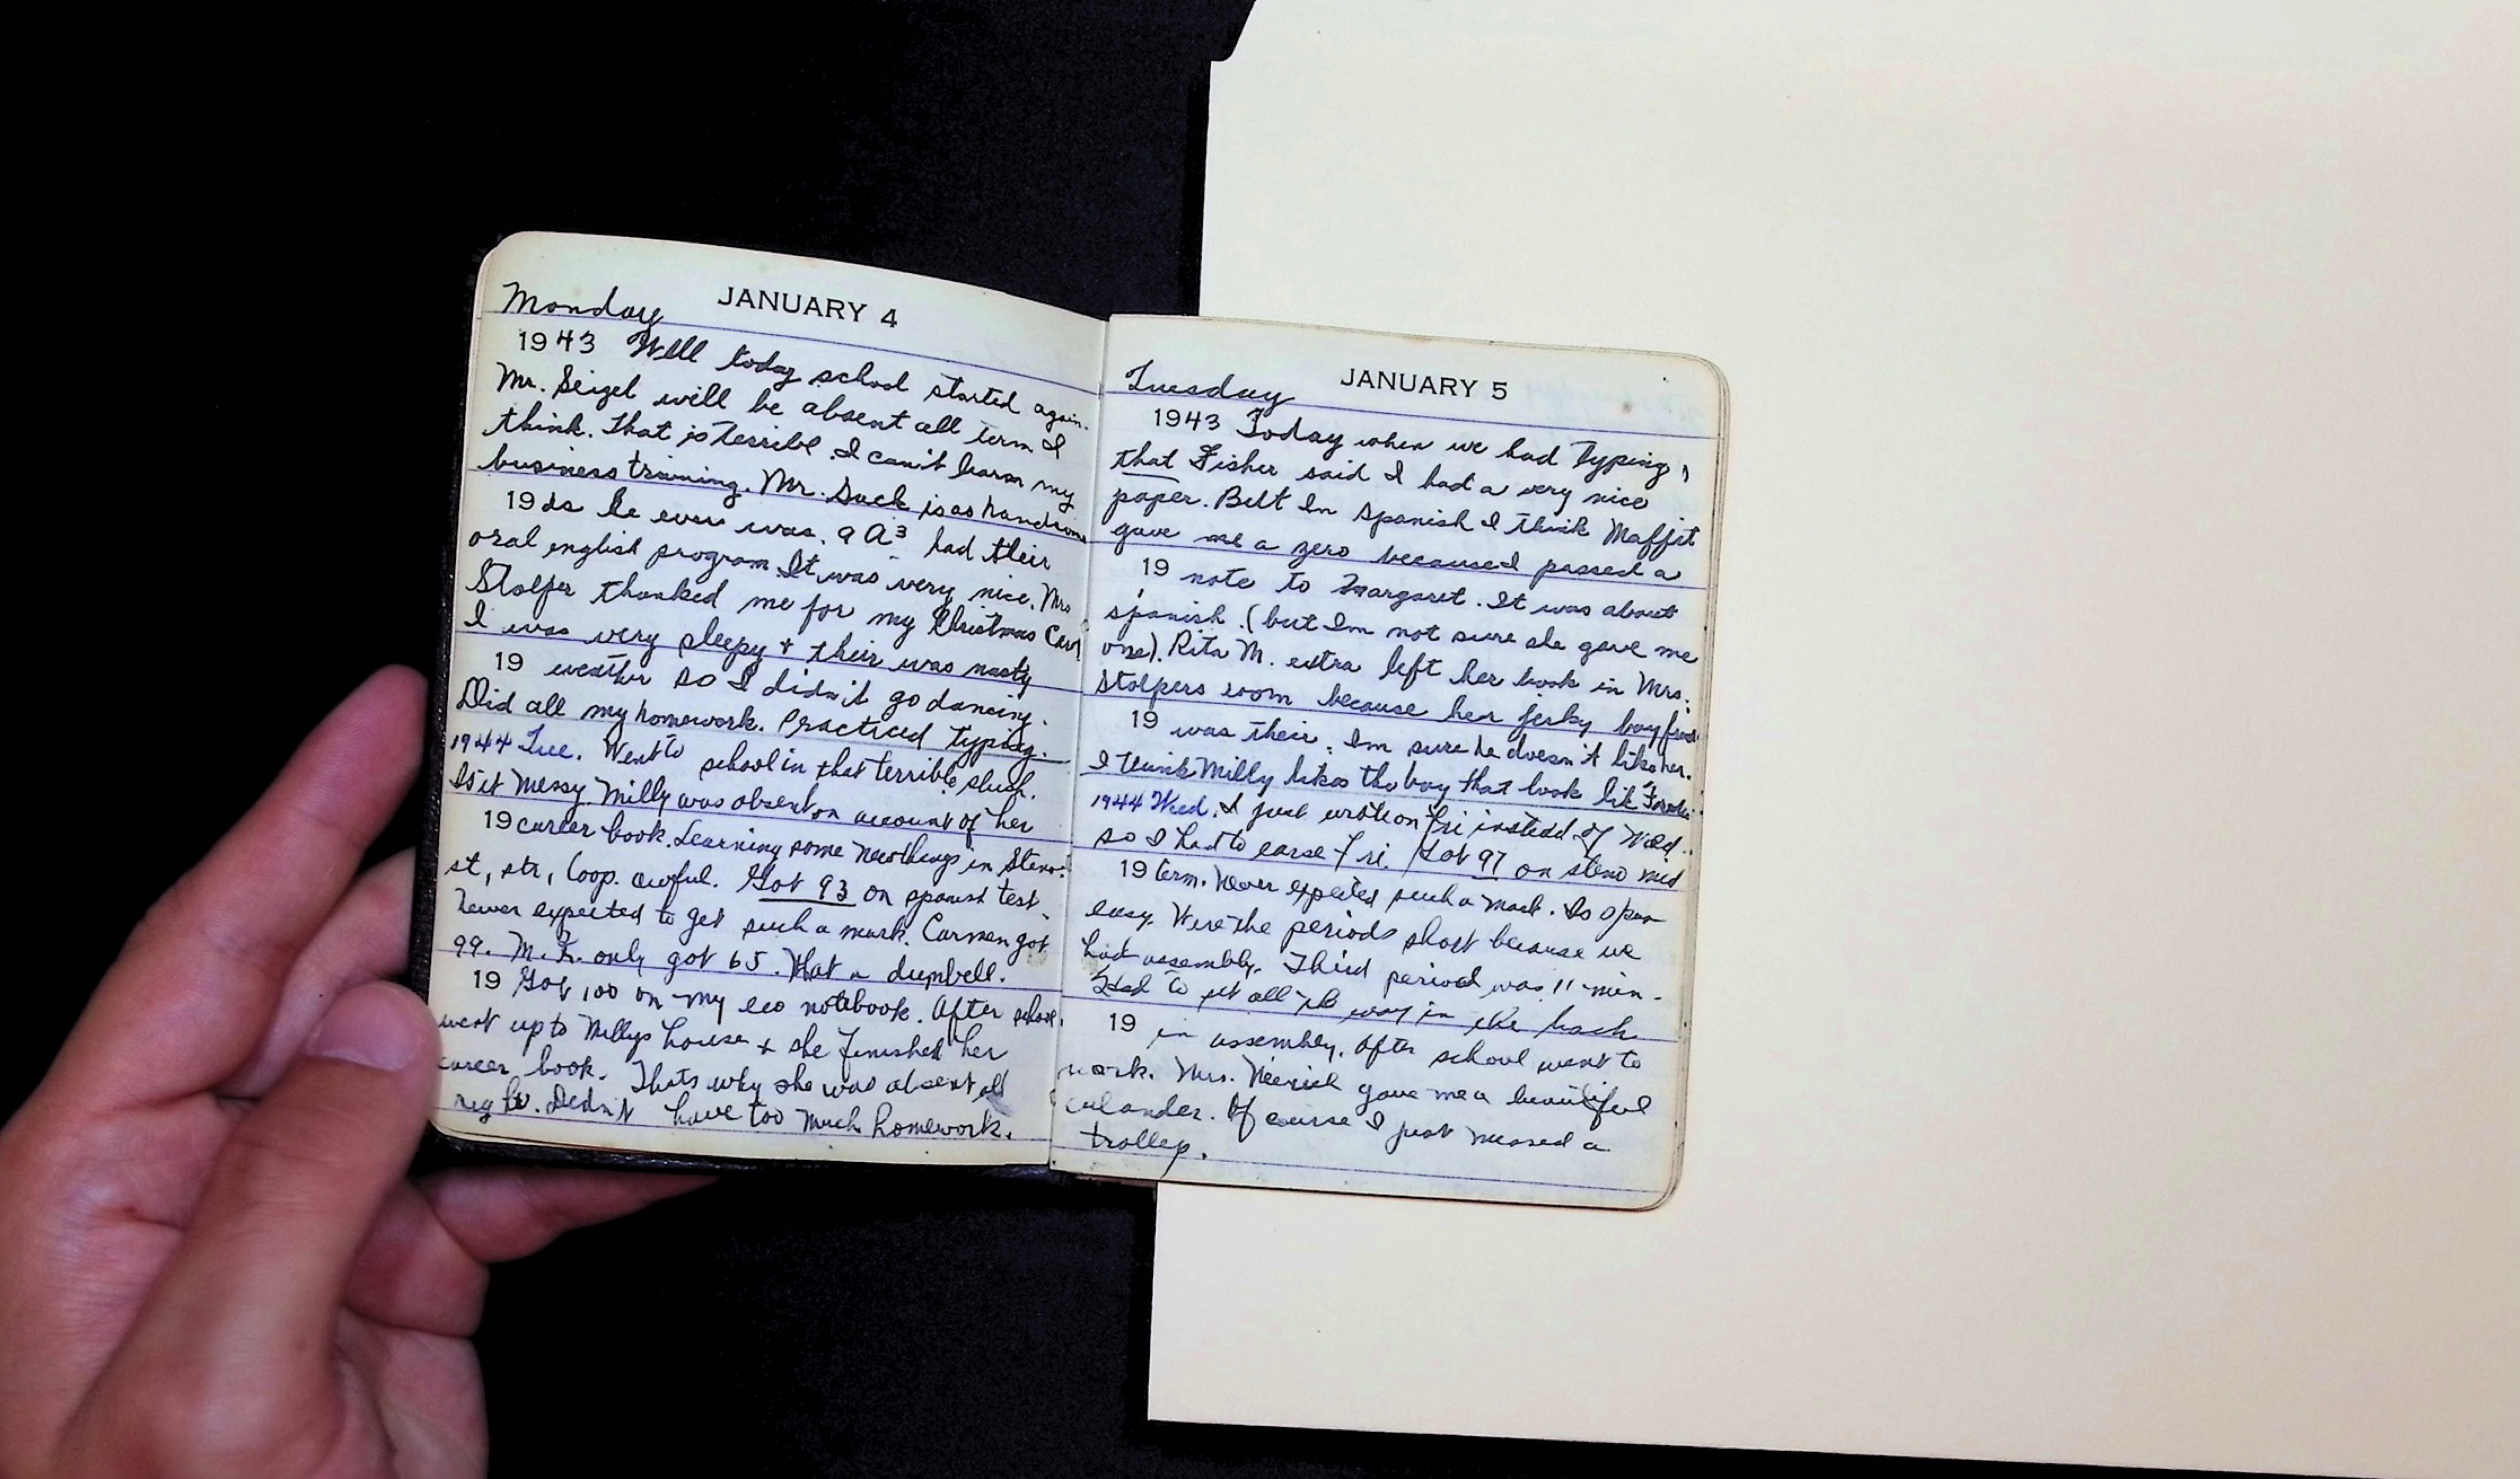 Monday JANUARY 4
1943 Well today school started again.
Mr. Seigel will be absent all term I
think. That is terrible. I can't learn my
business training. Mr. Sack is as handsome
19 as he ever was. 9A3 had their
oral english program. It was very nice. Mrs
Stolper thanked me for my Christmas Card
I was very sleepy + their was nasty
19 weather so I didn't go dancing.
Did all my homework. Practiced typing.
1944 Tue. Went to school in that terrible slush.
Is it messy. Milly was absent on account of her
19 career book. Learning some new things in Steno.
st, str, loop. awful. Got 93 on spanish test.
Never expected to get such a mark. Carmen got
99. M. K. only got 65. What a dumbell.
19 Got 100 on my eco notebook. After school
went up to Millys house + she finished her
career book. Thats why she was absent all
right. Didn't have too much homework.
Tuesday JANUARY 5
1943 Today when we had typing,
that Fisher said I had a very nice
paper. But In Spanish I think Maffit
gave me a zero because I passed a
19 note to Margaret. It was about
spanish. (but Im not sure she gave me
one). Rita M. extra left her book in Mrs.
Stolpers room because her jerky boyfriend
19 was their. Im sure he doesn't like her.
I think Milly likes the boy that look like
1944 Wed. I just wrote on Fri instead of Wed.
so I had to earse Fri. Got 97 on steno mid
19 term. Never expected such a mark. So
easy. Were the periods short because we
had assembly. Third period was 11 min.
Had to sit all the way in the back
19 in assembly. After school went to
work. Mrs. gave me a beautiful
calander. Of course I just missed a
trolley.